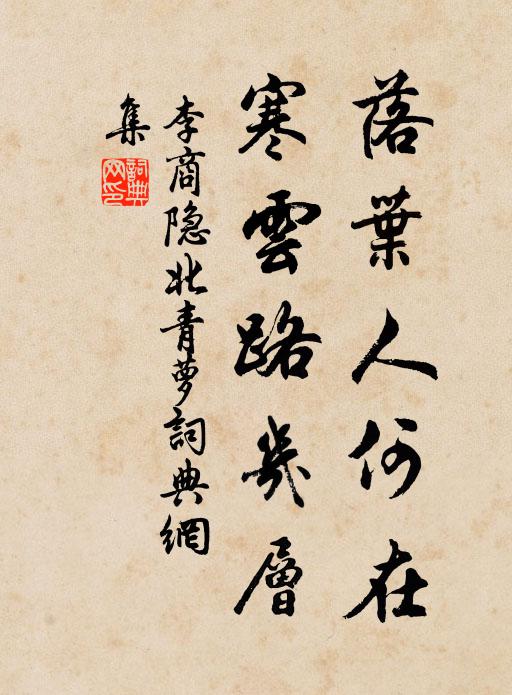 落葉人何在
寒雲路幾層
李商隐北青萝詞典網
集
詞典网印